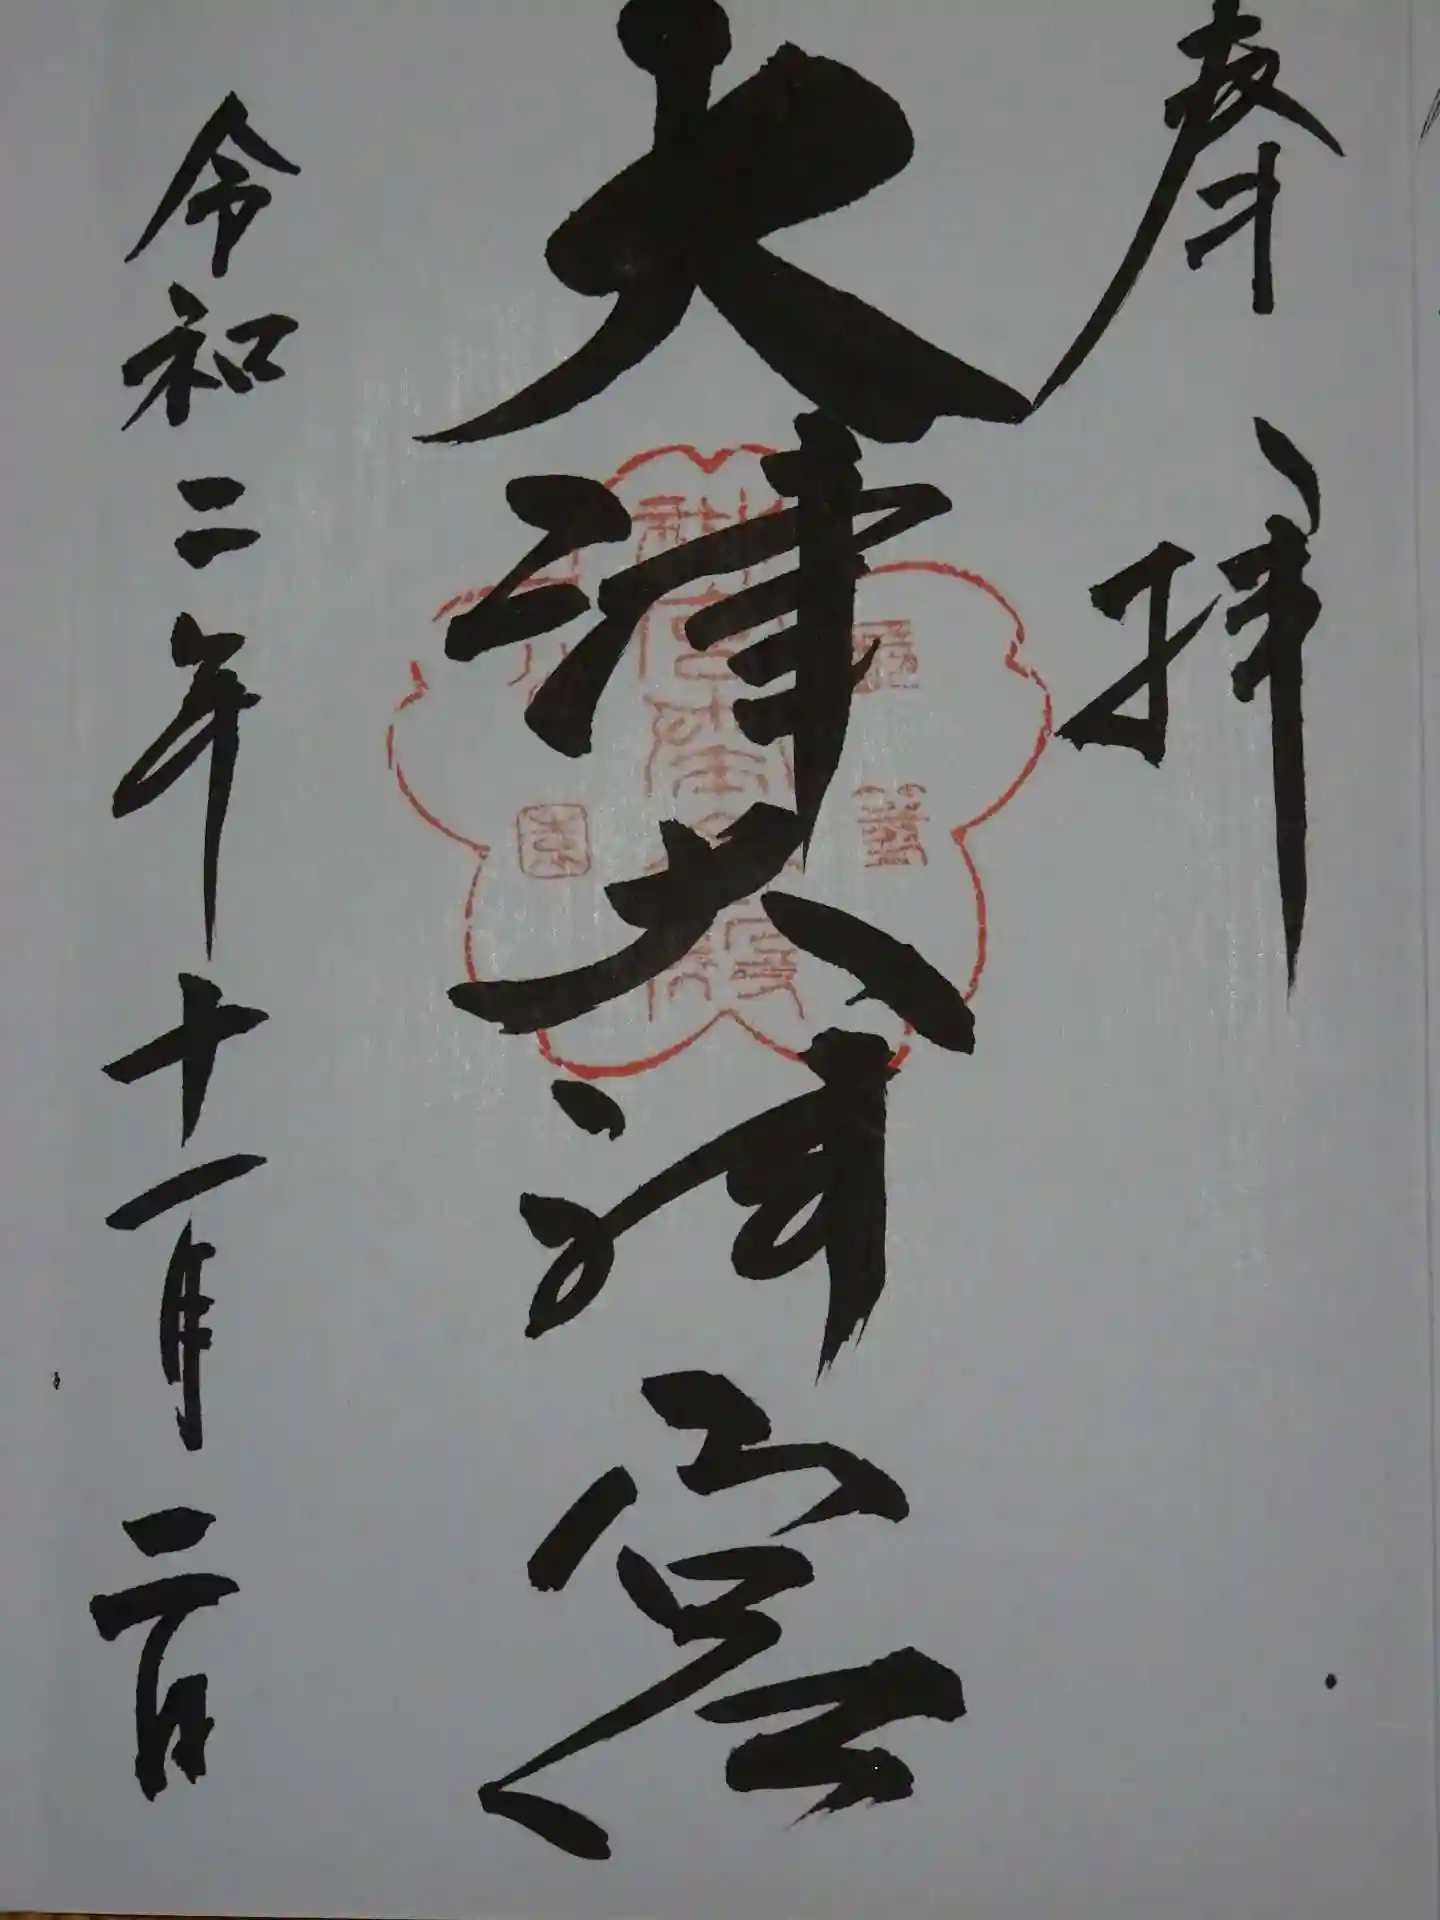 奉拝
大津大神宮
令和二年十一月二日